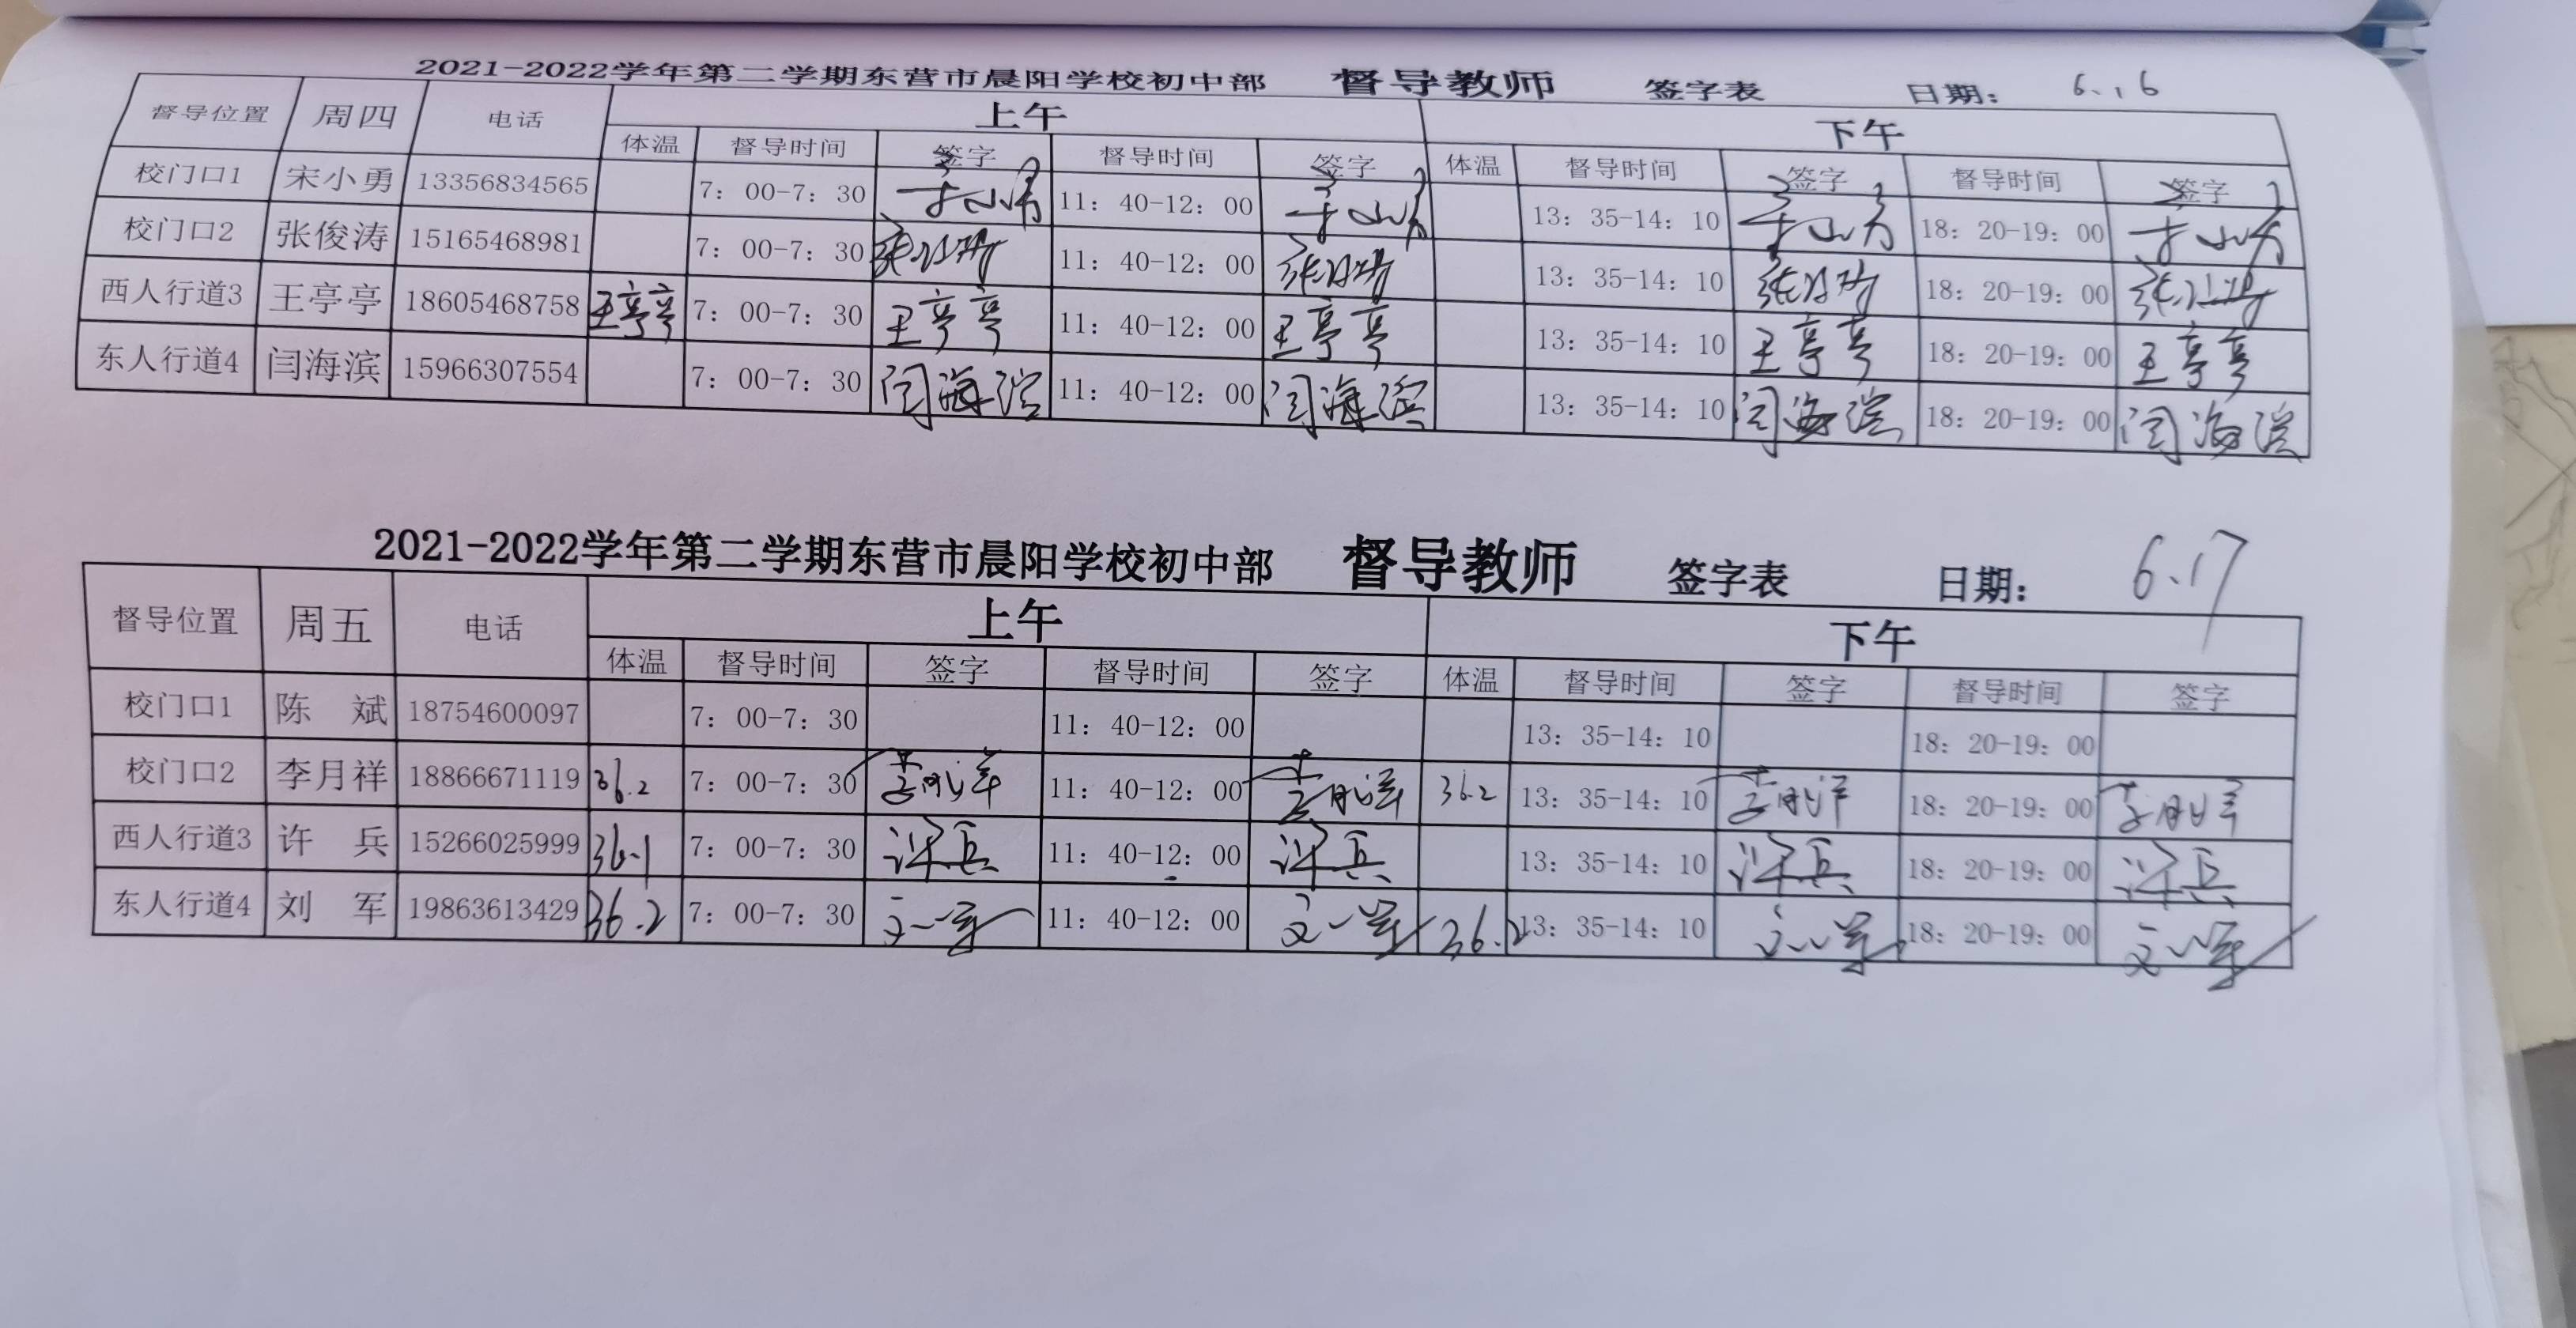 2021-2022学年第二学期东营市晨阳学校初中部 督导教师 签字表 日期： 6.16
督导位置 周四 电话 上午 下午
体温 督导时间 签字 督导时间 签字 体温 督导时间 签字 督导时间 签字
校门口1 宋小勇 13356834565 7：00-7：30 11：40-12：00 13：35-14：10 18：20-19：00
校门口2 张俊涛 15165468981 7：00-7：30 11：40-12：00 13：35-14：10 18：20-19：00
西人行道3 王亭亭 18605468758 王亭亭 7：00-7：30 王亭亭 11：40-12：00 王亭亭 13：35-14：10 王亭亭 18：20-19：00 王亭亭
东人行道4 闫海滨 15966307554 7：00-7：30 闫海滨 11：40-12：00 闫海滨 13：35-14：10 闫海滨 18：20-19：00 闫海滨
2021-2022学年第二学期东营市晨阳学校初中部 督导教师 签字表 日期： 6.17
督导位置 周五 电话 上午 下午
体温 督导时间 签字 督导时间 签字 体温 督导时间 签字 督导时间 签字
校门口1 陈 斌 18754600097 7：00-7：30 11：40-12：00 13：35-14：10 18：20-19：00
校门口2 李月祥 18866671119 36.2 7：00-7：30 李月祥 11：40-12：00 李月祥 36.2 13：35-14：10 李月祥 18：20-19：00 李月祥
西人行道3 许 兵 15266025999 36.1 7：00-7：30 许兵 11：40-12：00 许兵 13：35-14：10 许兵 18：20-19：00 许兵
东人行道4 刘 军 19863613429 36.2 7：00-7：30 刘军 11：40-12：00 刘军 36.2 13：35-14：10 刘军 18：20-19：00 刘军